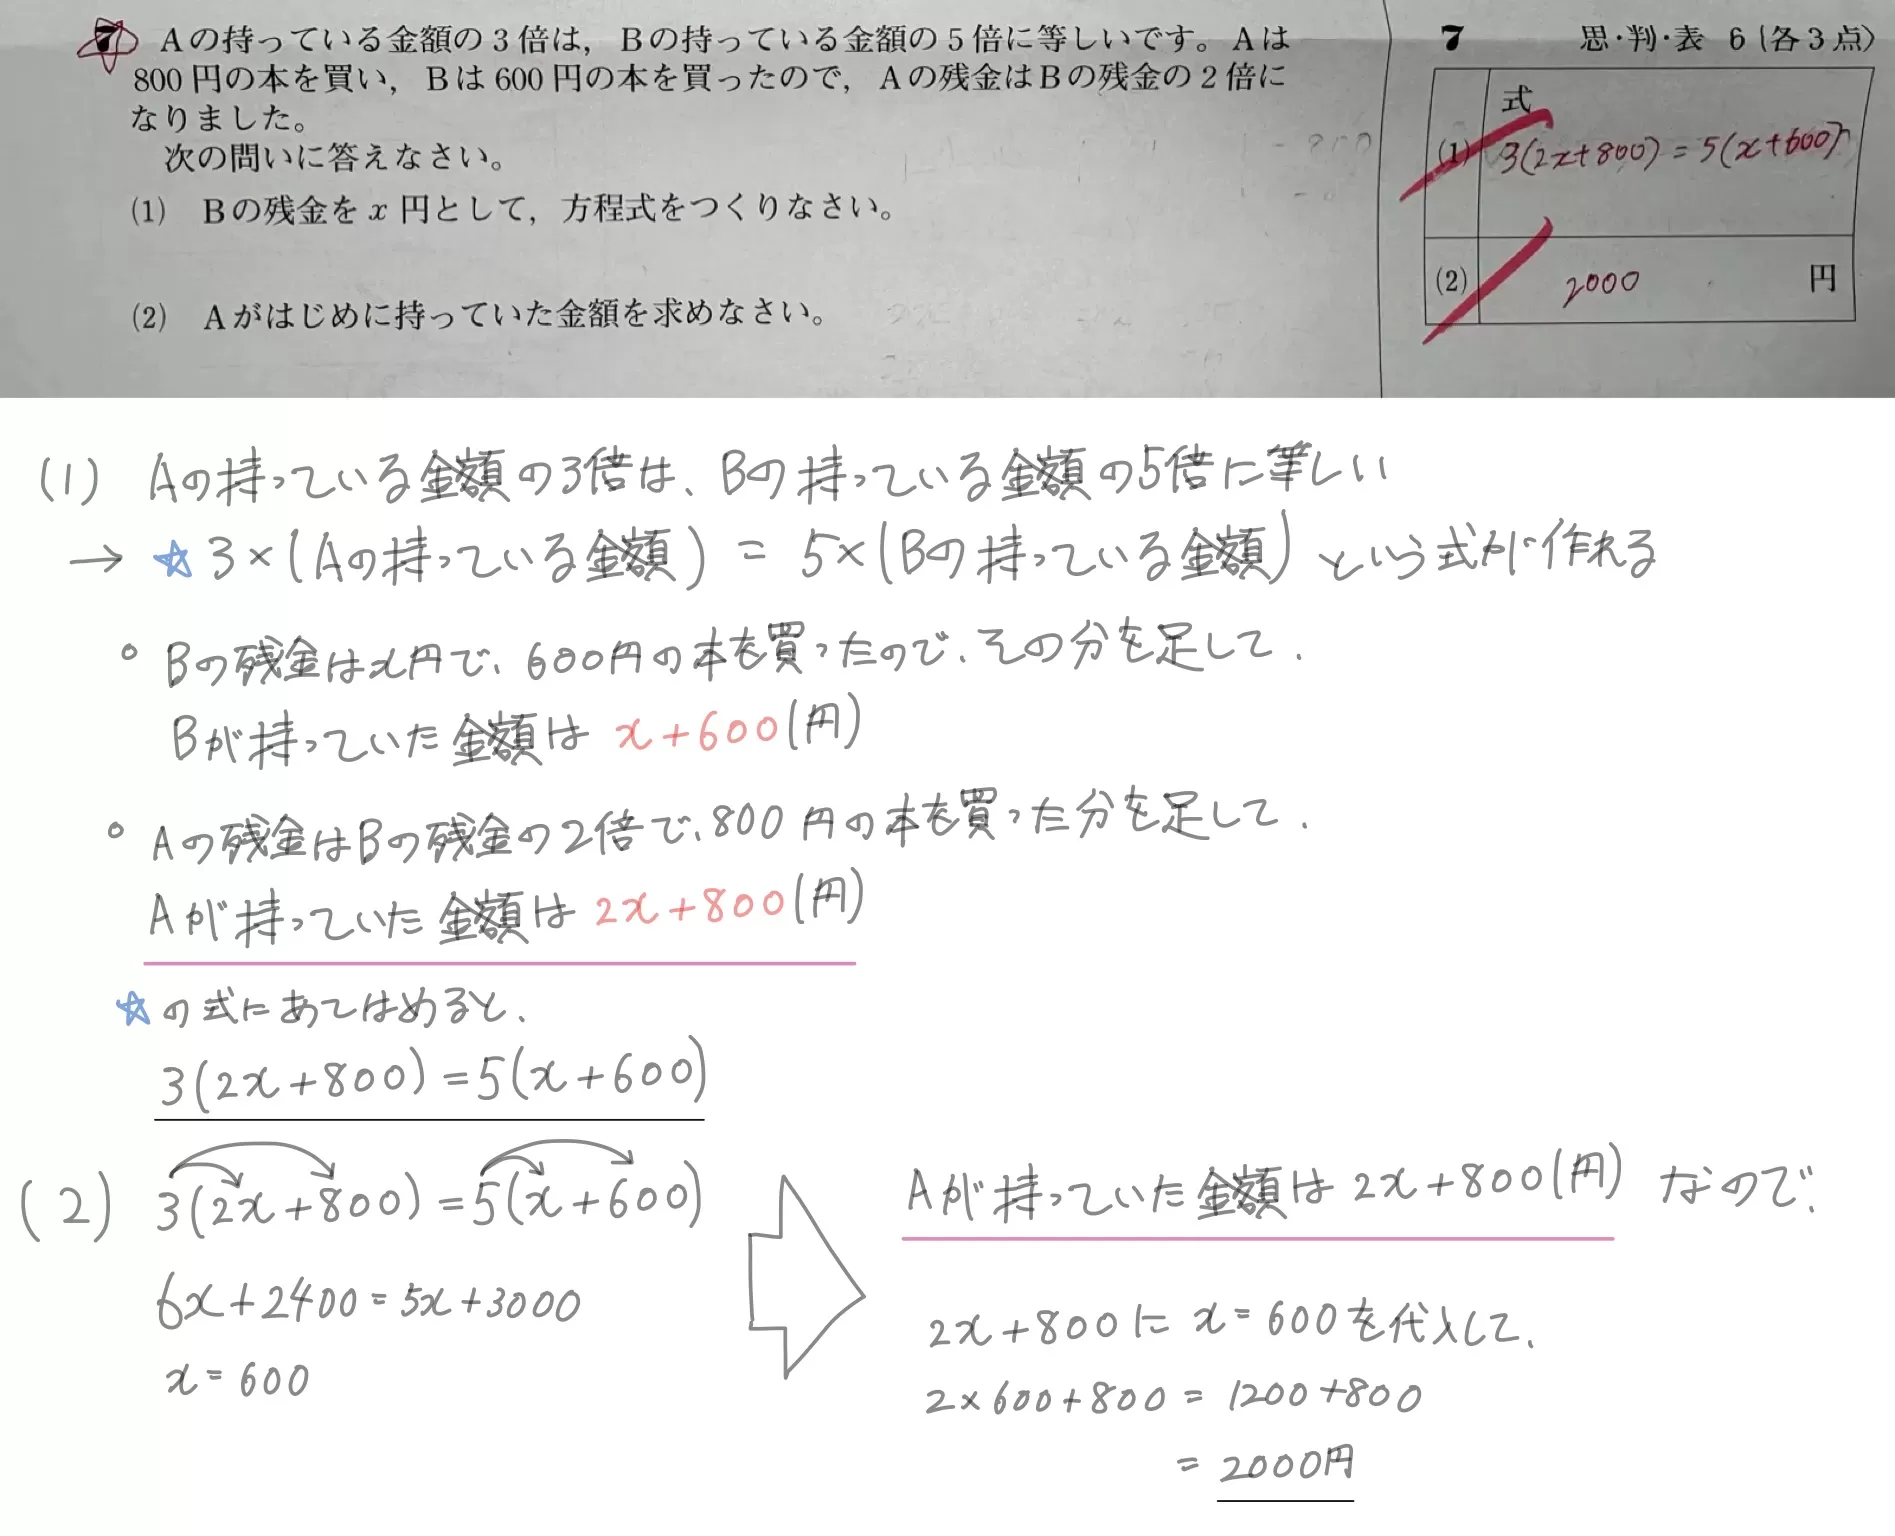 7 Aの持っている金額の3倍は，Bの持っている金額の5倍に等しいです。Aは
800円の本を買い，Bは600円の本を買ったので，Aの残金はBの残金の2倍に
なりました。
次の問いに答えなさい。
(1) Bの残金をx円として，方程式をつくりなさい。
(2) Aがはじめに持っていた金額を求めなさい。
7 思・判・表 6(各3点)
式
(1) 3(2x+800)=5(x+600)
(2) 2000 円
(1) Aの持っている金額の3倍は、Bの持っている金額の5倍に等しい
→ ☆ 3×(Aの持っている金額) = 5×(Bの持っている金額) という式が作れる
○ Bの残金はx円で、600円の本を買ったので、その分を足して、
Bが持っていた金額は x+600(円)
○ Aの残金はBの残金の2倍で、800円の本を買った分を足して、
Aが持っていた金額は 2x+800(円)
☆の式にあてはめると、
3(2x+800)=5(x+600)
(2) 3(2x+800)=5(x+600)
6x+2400=5x+3000
x=600
Aが持っていた金額は 2x+800(円) なので、
2x+800に x=600を代入して、
2×600+800 = 1200+800
= 2000円